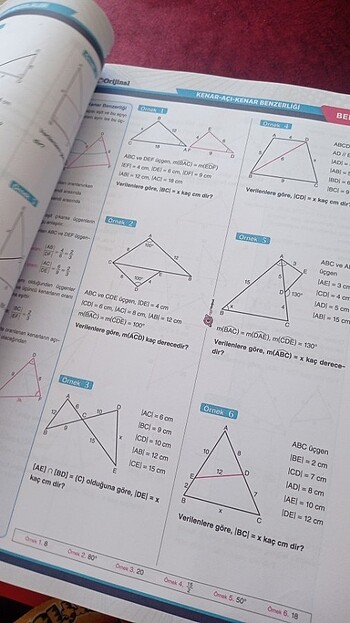 Orijinal
KENAR-AÇI-KENAR BENZERLİĞİ
Örnek 1
ABC ve DEF üçgen, m(BAC) = m(EDF)
|EF| = 4 cm, |DE| = 6 cm, |DF| = 9 cm
|AB| = 12 cm, |AC| = 18 cm
Verilenlere göre, |BC| = x kaç cm dir?
Örnek 2
100°
100°
ABC ve CDE üçgen, |DE| = 4 cm
|CD| = 6 cm, |AC| = 8 cm, |AB| = 12 cm
m(BAC) = m(CDE) = 100°
Verilenlere göre, m(ACD) kaç derecedir?
Örnek 3
|AC| = 6 cm
|BC| = 9 cm
|CD| = 10 cm
|AB| = 12 cm
|CE| = 15 cm
[AE] ∩ [BD] = {C} olduğuna göre, |DE| = x
kaç cm dir?
Örnek 4
ABCD
Verilenlere göre, |CD| = x kaç cm dir?
Örnek 5
130°
üçgen
|AE| = 3 cm
|CD| = 4 cm
|AD| = 5 cm
|AB| = 15 cm
m(BAC) = m(DAE), m(CDE) = 130°
Verilenlere göre, m(ABC) = x kaç derece-
dir?
Örnek 6
ABC üçgen
|BE| = 2 cm
|CD| = 7 cm
|AD| = 8 cm
|AE| = 10 cm
|DE| = 12 cm
Verilenlere göre, |BC| = x kaç cm dir?
Örnek 1. 8 Örnek 2. 80° Örnek 3. 20 Örnek 4. 15/2 Örnek 5. 50° Örnek 6. 18